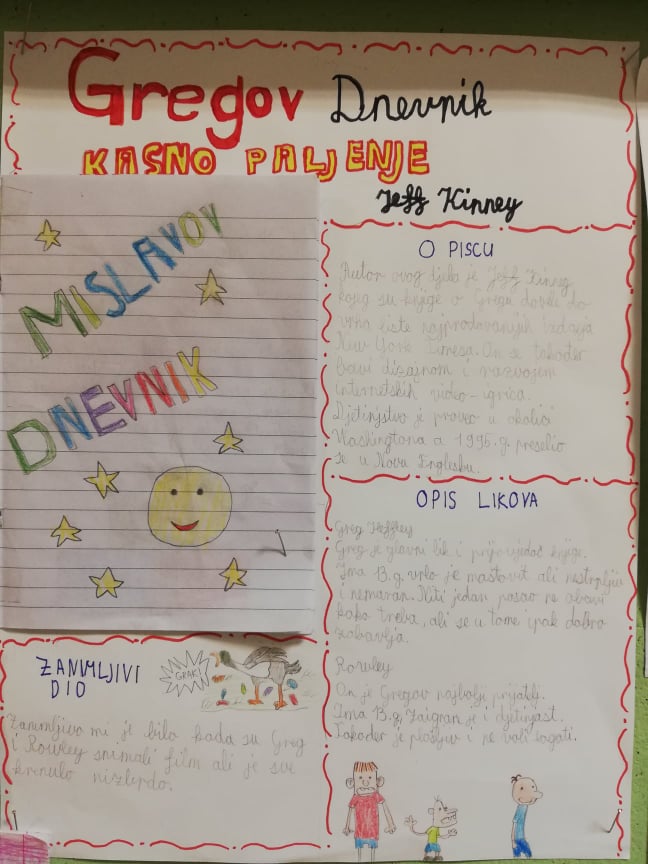 Gregov Dnevnik
KASNO PALJENJE
Jeff Kinney
MISLAVOV
DNEVNIK
O PISCU
Autor ovog djela je Jeff Kinney,
koga su knjige o Gregu dovele do
vrha liste najprodavanijih izdanja
New York Timesa. On se također
bavi dizajnom i razvojem
internetskih video-igrica.
Djetinjstvo je proveo u okolici
Washingtona a 1995.g. preselio
se u Novu Englesku.
OPIS LIKOVA
Greg Heffley
Greg je glavni lik i pripovjedač knjige.
Ima 13.g. vrlo je maštovit ali nestrpljiv
i nemaran. Niti jedan posao ne obavi
kako treba, ali se u tome ipak dobro
zabavlja.
Rowley
On je Gregov najbolji prijatelj.
Ima 13.g. Zaigran je i djetinjast.
Također je plašljiv i ne voli
ZANIMLJIVI
DIO
GRAK!
Zanimljivo mi je bilo kada su Greg
i Rowley snimali film ali je sve
krenulo nizbrdo.